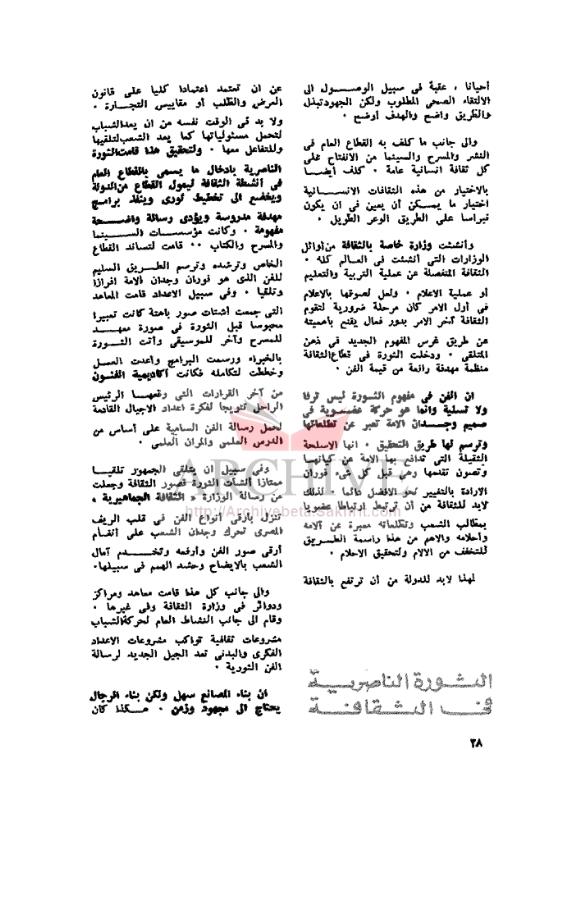 أحيانا ، عقبة فى سبيل الوصول الى
الالتقاء الصحى المطلوب ولكن الجهودتبذل
والطريق واضح والهدف أوضح .
والى جانب ما كلف به القطاع العام فى
النشر والمسرح والسينما من الانفتاح على
كل ثقافة انسانية عامة . كلف أيضا
بالاختيار من هذه الثقافات الانسانية
اختيار ما يمكن أن يعين فى ان يكون
نبراسا على الطريق الوعر الطويل .
وأنشئت وزارة خاصة بالثقافة من أوائل
الوزارات التى أنشئت فى العالم كله .
الثقافة المنفصلة عن عملية التربية والتعليم
أو عملية الاعلام . ولعل لصوقها بالاعلام
فى أول الامر كان مرحلة ضرورية لتقوم
الثقافة آخر الامر بدور فعال يقنع بأهميته
عن طريق غرس المفهوم الجديد فى ذهن
المتلقى . ودخلت الثورة فى قطاع الثقافة
منظمة مهدفة رائعة من قيمة الفن .
ان الفن فى مفهوم الثورة ليس ترفا
ولا تسلية وانما هو حركة عضوية فى
صميم وجدان الامة تعبر عن تطلعاتها
وترسم لها طريق التحقيق . انها الاسلحة
الثقيلة التى تدافع بها الامة عن كيانها
وتصون تقدمها وهى قبل كل شىء فوران
الارادة بالتغيير نحو الافضل دائما . لذلك
لابد للثقافة من أن ترتبط ارتباطا عضويا
بمطالب الشعب وتطلعاته معبرة عن آلامه
وأحلامه والاهم من هذا راسمة الطريق
للتخفف من الالام ولتحقيق الاحلام .
لهذا لابد للدولة من أن ترتفع بالثقافة
عن ان تعتمد اعتمادا كليا على قانون
العرض والطلب أو مقاييس التجارة .
ولا بد فى الوقت نفسه من ان يعدالشباب
لتحمل مسئولياتها كما يعد الشعب لتلقيها
وللتفاعل معها . ولتحقيق هذا قامت الثورة
الناصرية بادخال ما يسمى بالقطاع العام
فى أنشطة الثقافة ليمول القطاع من الدولة
ويخضع الى تخطيط ثورى وينفذ برامج
مهدفة مدروسة ويؤدى رسالة واضحة
مفهومة . وكانت مؤسسات السينما
والمسرح والكتاب .. قامت لتساند القطاع
الخاص وترشده وترسم الطريق السليم
للفن الذى هو فوران وجدان الامة افرازا
وتلقيا . وفى سبيل الاعداد قامت المعاهد
التى جمعت أشتات صور باهتة كانت تعبيرا
محبوسا قبل الثورة فى صورة معهد
للمسرح وآخر للموسيقى وأتت الثورة
بالخبراء ورسمت البرامج وأعدت العمل
وخططت لتكامله فكانت أكاديمية الفنون
من آخر القرارات التى وقعها الرئيس
الراحل تتويجا لفكرة اعداد الاجيال القادمة
لحمل رسالة الفن السامية على أساس من
الدرس العلمى والمران العلمى .
وفى سبيل ان يتلقى الجمهور تلقيا
ممتازا أنشأت الثورة قصور الثقافة وجعلت
من رسالة الوزارة « الثقافة الجماهيرية »
تنزل بأرقى أنواع الفن فى قلب الريف
المصرى تحرك وجدان الشعب على أنغام
أرقى صور الفن وأرفعه وتخدم آمال
الشعب بالايضاح وحشد الهمم فى سبيلها.
والى جانب كل هذا قامت معاهد ومراكز
ودوائر فى وزارة الثقافة وفى غيرها .
وقام الى جانب النشاط العام لحركة الشباب
مشروعات ثقافية تواكب مشروعات الاعداد
الفكرى والبدنى تعد الجيل الجديد لرسالة
الفن الثورية .
ان بناء المصانع سهل ولكن بناء الرجال
يحتاج الى مجهود وزمن . هكذا كان
الثورة الناصرية
فى الثقافة
٣٨
ARCHIVE
http://Archivebeta.Sakhrit.com